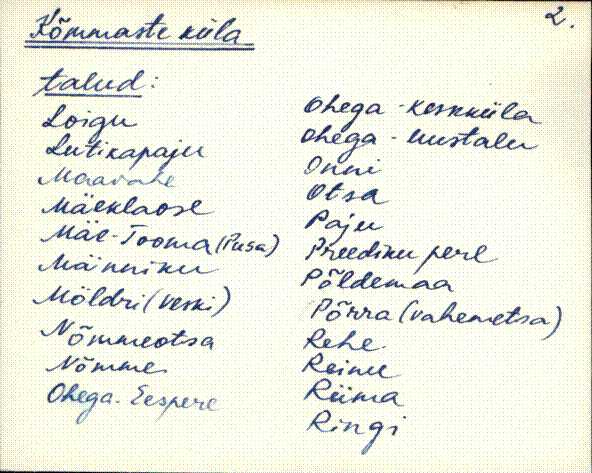 2.
Kõmmaste küla
talud:
Loigu
Lutikapaju
Maavahe
Mäeklaose
Mäe-Tooma (Pusa)
Männiku
Möldri (veski)
Nõmmeotsa
Nõmme
Ohega-Eespere
Ohega-Keskküla
Ohega-Uustalu
Onni
Otsa
Paju
Preediku pere
Põldemaa
Põrra (vahemetsa)
Rehe
Reinu
Riima
Ringi